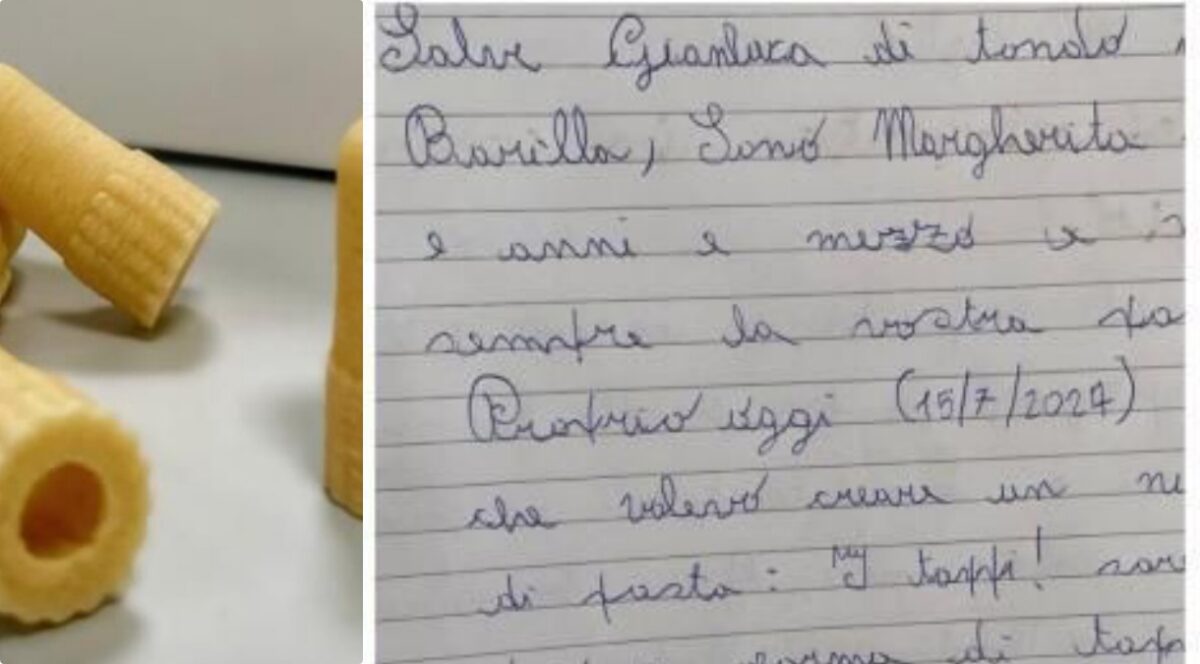 Salve Gianluca di tondo
Barilla, Sono Margherita
e anni e mezzo e
sempre la vostra pa
Proprio oggi (15/7/2024)
che volevo creare un
di pasta: "I tappi! sar
forma di tap